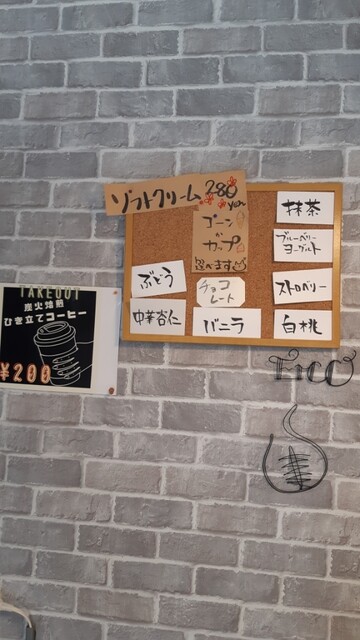 ソフトクリーム 280 yen
コーン
か
カップ
選べます
抹茶
ブルーベリー
ヨーグルト
ストロベリー
白桃
ぶどう
チョコ
レート
中華杏仁
バニラ
TAKEOUT
炭火焙煎
ひき立てコーヒー
¥200
FICO